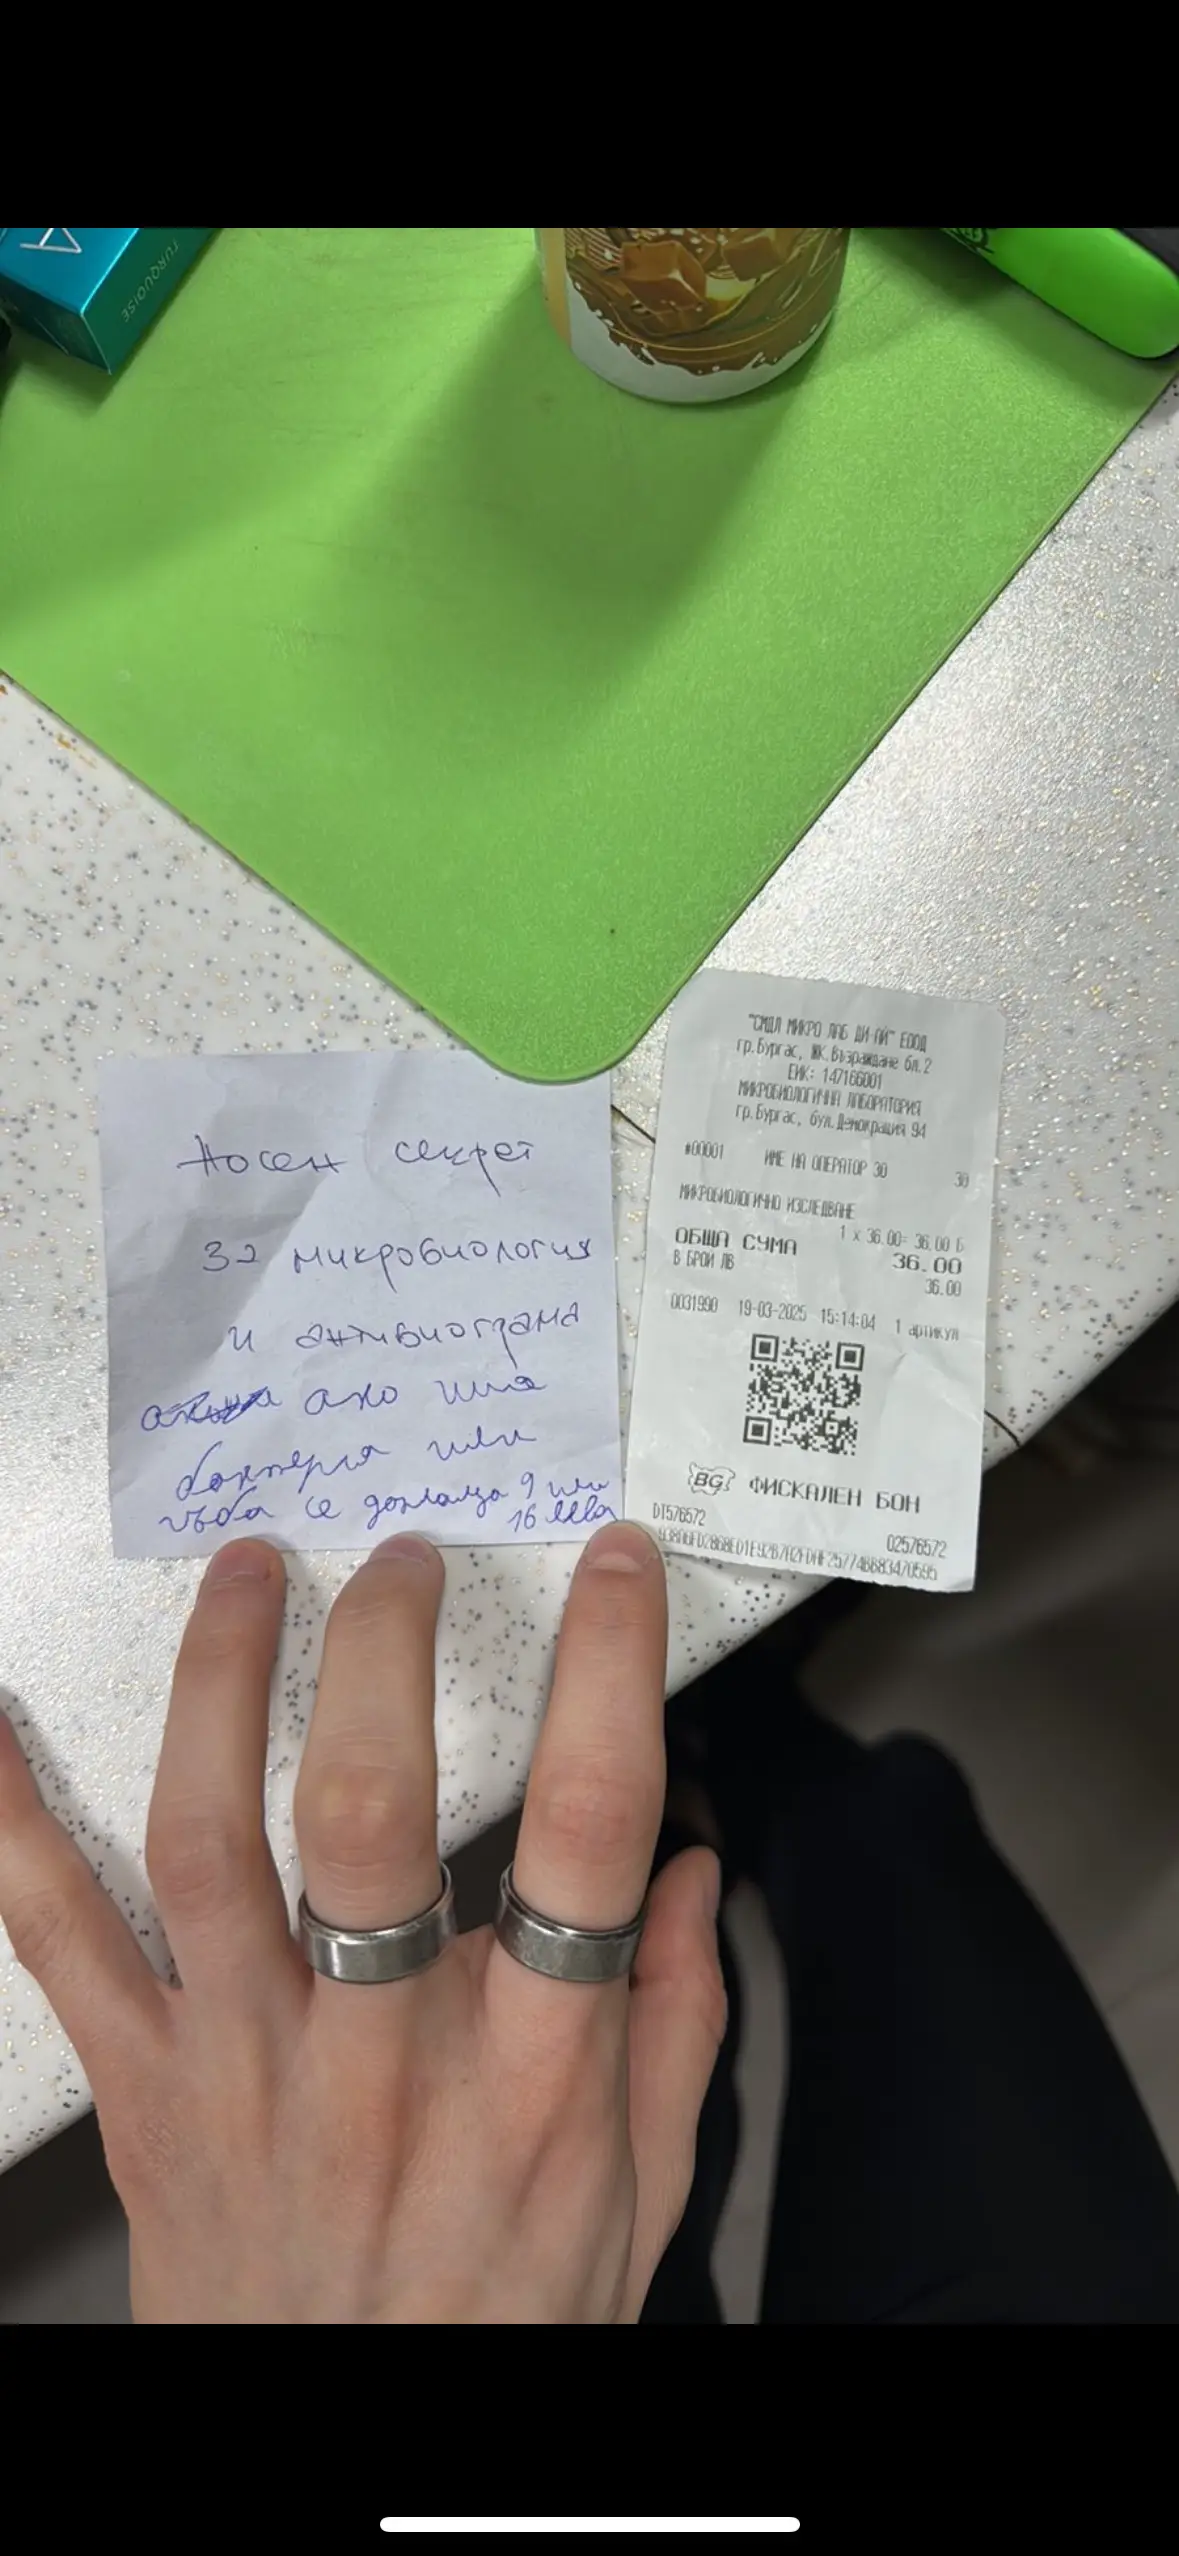 TURQUOISE
A
Носен секрет
за микробиология
и антибиограма
ако има
бактерия или
гъба се доплаща 9 или
16 лева
"СМДЛ МИКРО ЛАБ ДИ-АЙ" ЕООД
гр.Бургас, ЖК.Възраждане бл.2
ЕИК: 147166001
МИКРОБИОЛОГИЧНА ЛАБОРАТОРИЯ
гр.Бургас, бул.Демокрация 94
#00001 ИМЕ НА ОПЕРАТОР 30 30
МИКРОБИОЛОГИЧНО ИЗСЛЕДВАНЕ
1 x 36.00= 36.00 Б
ОБЩА СУМА 36.00
В БРОЙ ЛВ 36.00
0031990 19-03-2025 15:14:04 1 артикул
BG ФИСКАЛЕН БОН
DT576572 02576572